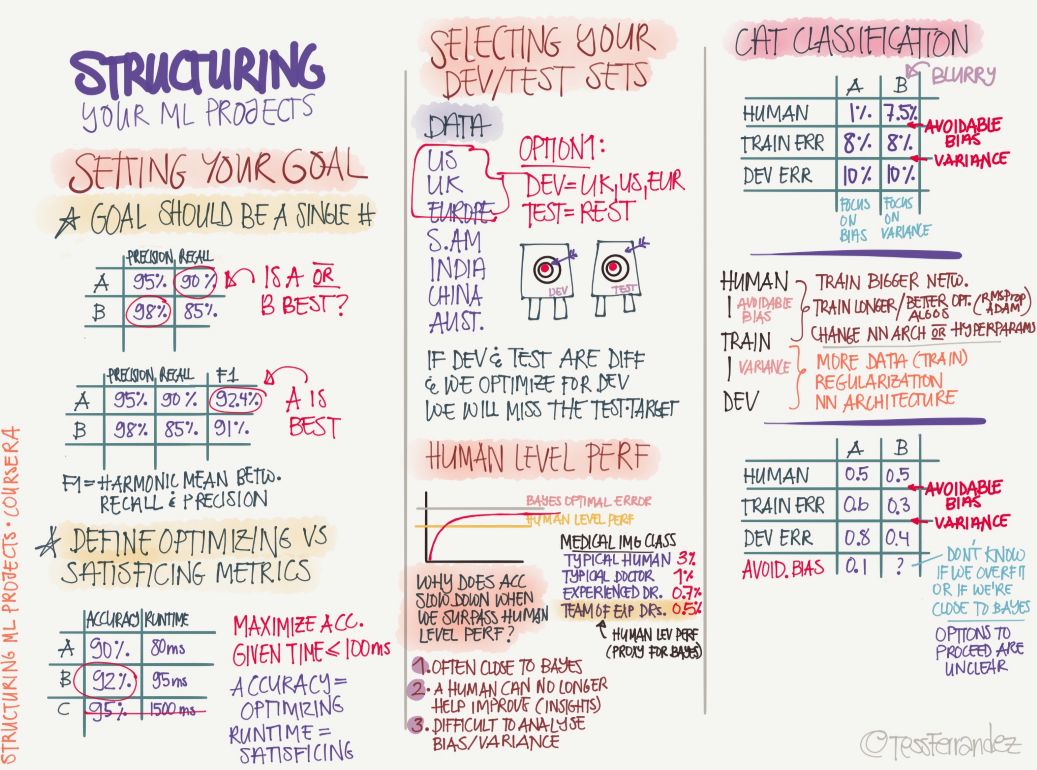 STRUCTURING
YOUR ML PROJECTS
SETTING YOUR GOAL
GOAL SHOULD BE A SINGLE #
PRECISION RECALL
A 95% 90%
B 98% 85%
IS A OR
B BEST?
PRECISION RECALL F1
A 95% 90% 92.4%
B 98% 85% 91%
A IS
BEST
F1 = HARMONIC MEAN BETW.
RECALL & PRECISION
DEFINE OPTIMIZING VS
SATISFICING METRICS
ACCURACY RUNTIME
A 90% 80ms
B 92% 95ms
C 95% 1500 ms
MAXIMIZE ACC.
GIVEN TIME ≤ 100ms
ACCURACY =
OPTIMIZING
RUNTIME =
SATISFICING
STRUCTURING ML PROJECTS · COURSERA
SELECTING YOUR
DEV/TEST SETS
DATA
US
UK
EUROPE
S.AM
INDIA
CHINA
AUST.
OPTION1:
DEV = UK, US, EUR
TEST = REST
DEV
TEST
IF DEV & TEST ARE DIFF
& WE OPTIMIZE FOR DEV
WE WILL MISS THE TEST-TARGET
HUMAN LEVEL PERF
BAYES OPTIMAL ERROR
HUMAN LEVEL PERF
MEDICAL IMG CLASS
TYPICAL HUMAN 3%
TYPICAL DOCTOR 1%
EXPERIENCED DR. 0.7%
TEAM OF EXP DRS. 0.5%
HUMAN LEV PERF
(PROXY FOR BAYES)
WHY DOES ACC
SLOW DOWN WHEN
WE SURPASS HUMAN
LEVEL PERF?
1. OFTEN CLOSE TO BAYES
2. A HUMAN CAN NO LONGER
HELP IMPROVE (INSIGHTS)
3. DIFFICULT TO ANALYSE
BIAS/VARIANCE
CAT CLASSIFICATION
BLURRY
A B
HUMAN 1% 7.5%
TRAIN ERR 8% 8%
DEV ERR 10% 10%
AVOIDABLE
BIAS
VARIANCE
FOCUS
ON
BIAS
FOCUS
ON
VARIANCE
HUMAN
AVOIDABLE
BIAS
TRAIN
VARIANCE
DEV
TRAIN BIGGER NETW.
TRAIN LONGER/BETTER OPT. ALGOS (RMSProp ADAM)
CHANGE NN ARCH OR HYPERPARAMS
MORE DATA (TRAIN)
REGULARIZATION
NN ARCHITECTURE
A B
HUMAN 0.5 0.5
TRAIN ERR 0.6 0.3
DEV ERR 0.8 0.4
AVOID. BIAS 0.1 ?
AVOIDABLE
BIAS
VARIANCE
DON'T KNOW
IF WE OVERFIT
OR IF WE'RE
CLOSE TO BAYES
OPTIONS TO
PROCEED ARE
UNCLEAR
©TessFerrandez